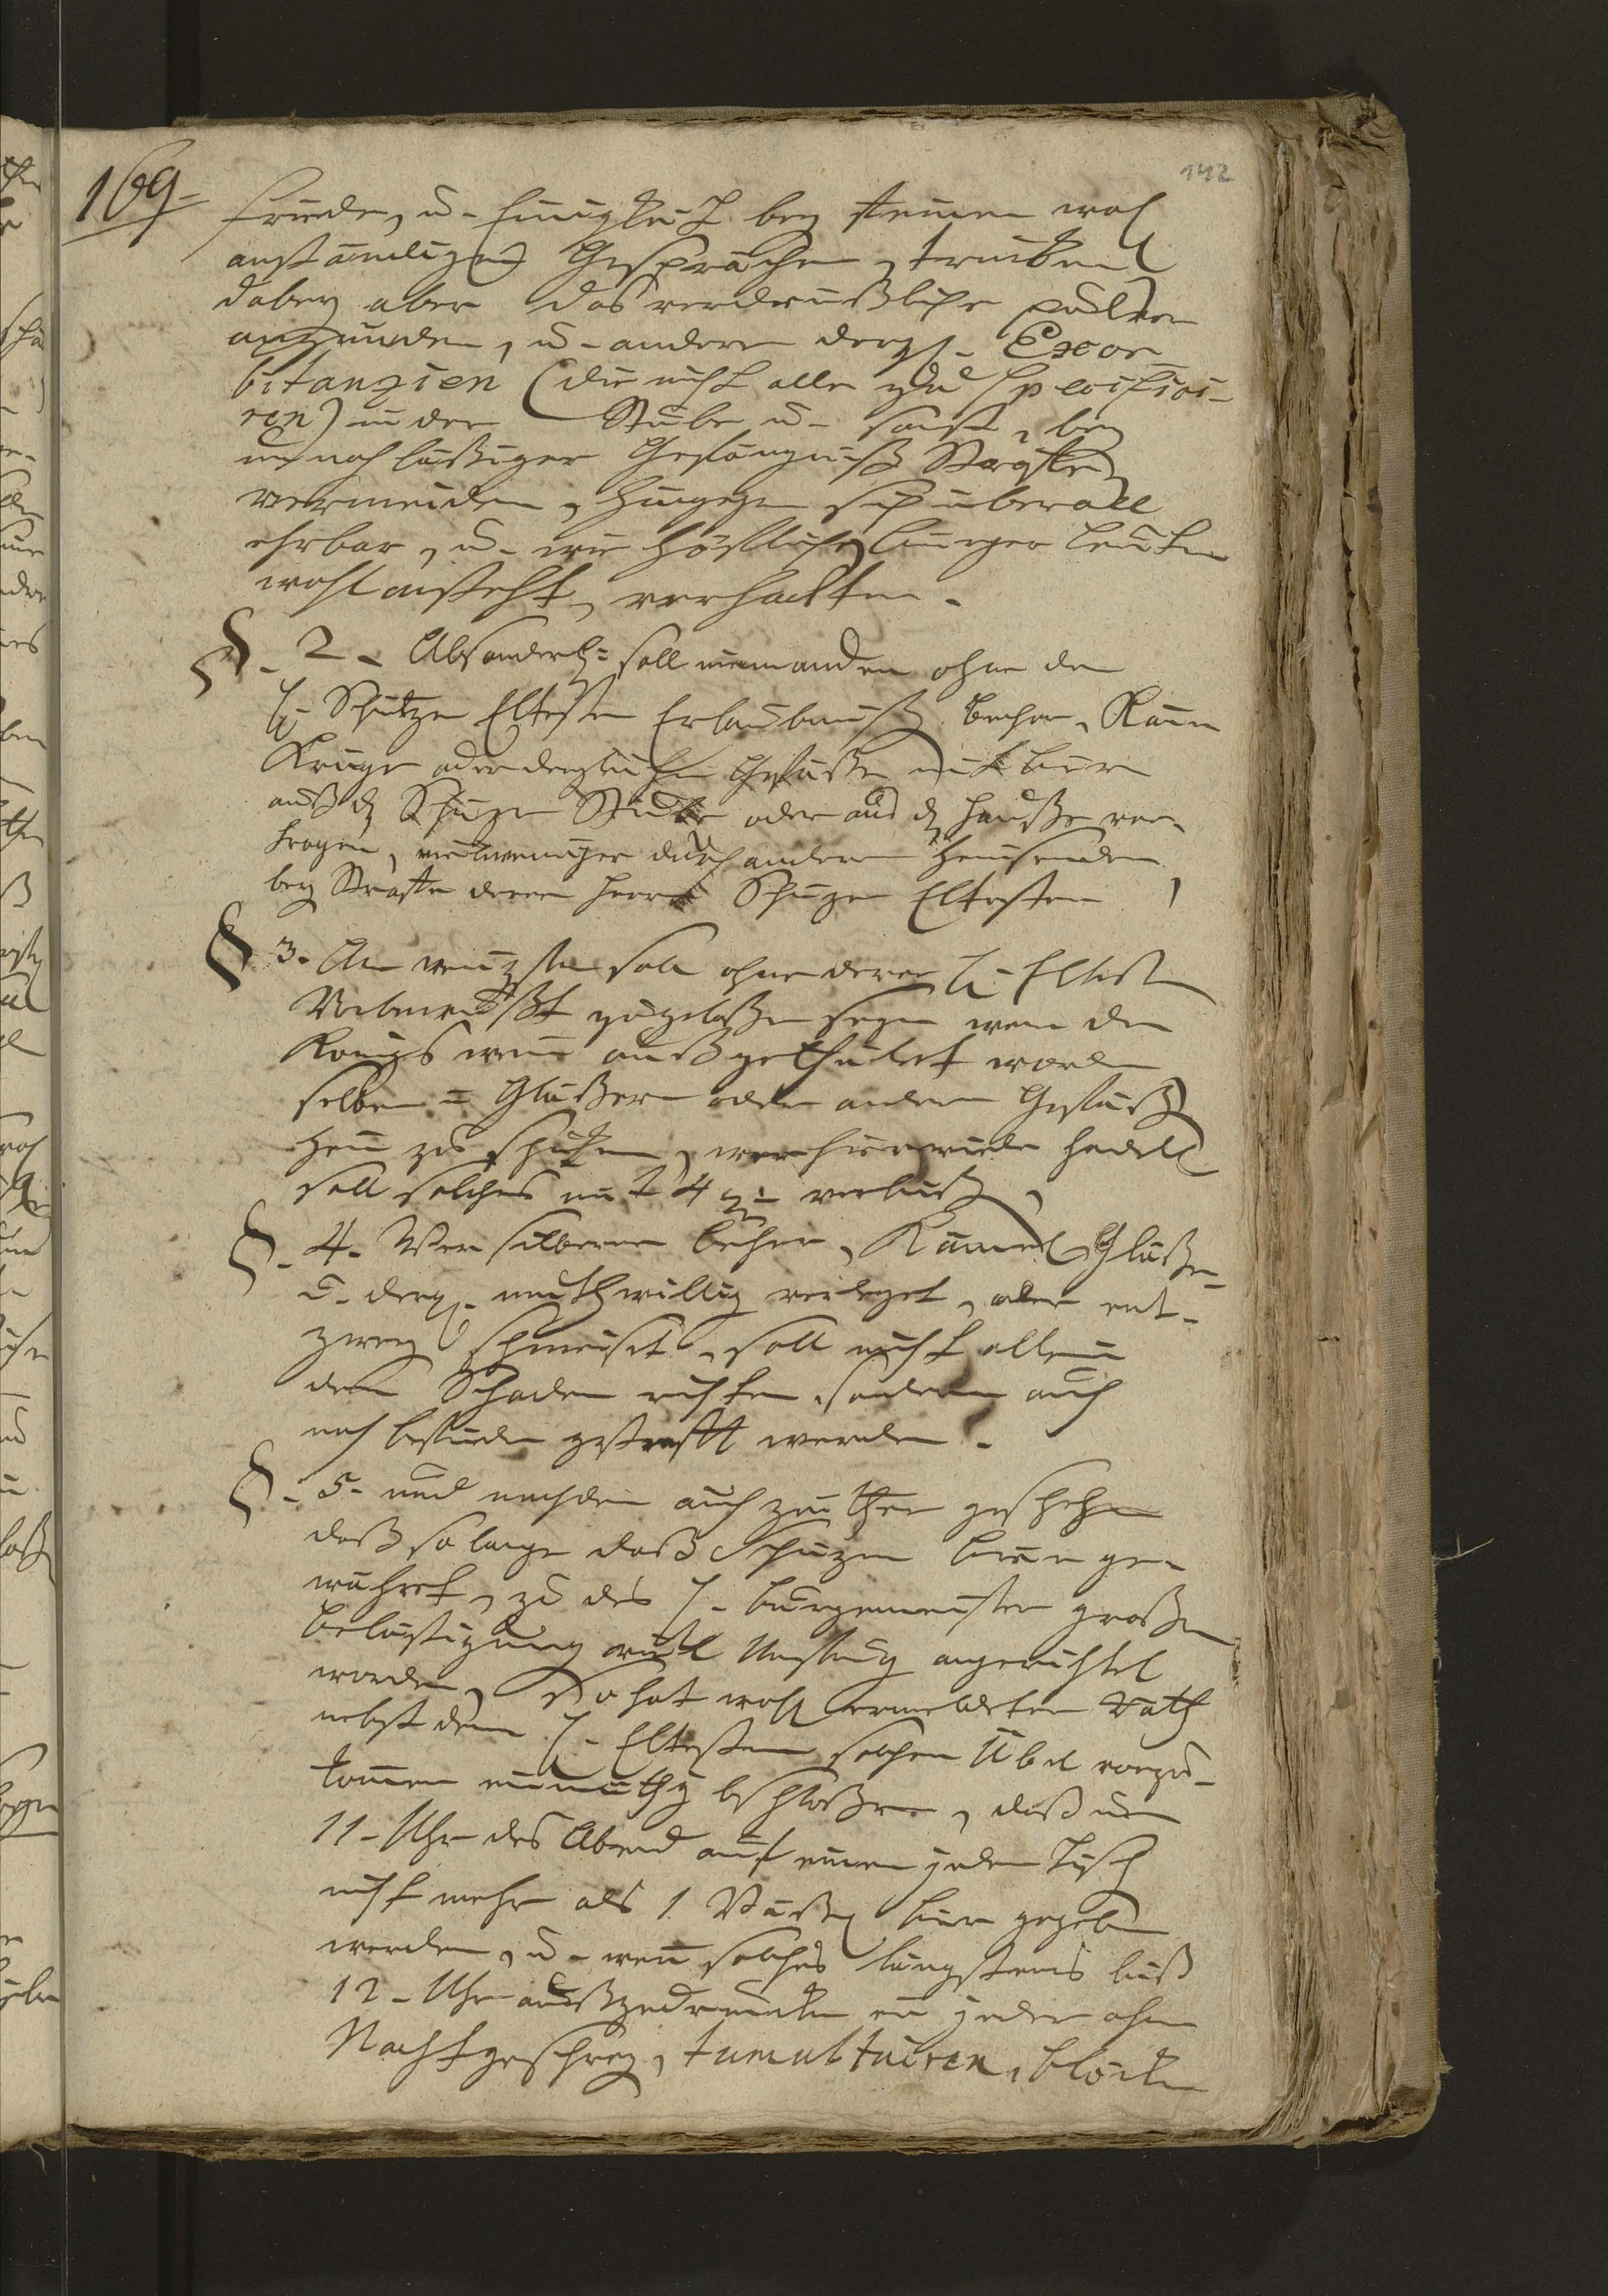 142
169
Friede, u. Einigkeit bey seinen wohl
anständigen Gesprächen, trincken
dabey aber das verdrüßliche pulver
anzünden, u. andere dergl. Exor-
bitanzien (die nicht alle zu specifici-
ren) in der Stube u. sonst, bey
unnachläßiger Gefängnuß Straffe
vermeiden, hingegen sich überall
ehrbar, u. wie höfliche bürger Leuten
wohl ansteht, verhalten.
§. 2. Absonderl. soll niemanden ohne der
H. Schützen Eltesten Erlaubnuß becher, Kann
Krüge oder dergleichen Gefäße mit bier
auß der Schützen Stube oder aus dem Hauße ver-
tragen, viel weniger durch andere heimsenden
bey Straffe deren Herrn Schützen Eltesten
§ 3. Am wenigsten soll ohne deren H. Eltesten
Vorbewust zugelaßen seyn wenn der
Königs wein außgetheilet word
selben in Gläßern oder andern Gefäß
heim zu schicken, wer hierwieder handelt
soll solches mit 4 verbüß
§. 4. Wer silberne becher, Kannel Gläßer
u. dergl. muthwillig verleget, oder ent-
zwey schmeiset, soll nicht allein
den Schaden richten, sondern auch
nach befinden gestrafft werden.
§. 5. und nachdem auch zeithero geschehen
daß so lange daß Schützen bier ge-
währet, zu des H. burgemeister großen
belästigung viel Unfug angerichtet
worden, So hat wohl ermeldeter Rath
nebst denen H. Eltesten solchen Übel vorzu-
kommen einmüthig beschloßen, daß um
11. Uhr des Abend auf einen jeden Tisch
nicht mehr als 1 bier gegeben
werden, u. wenn solches längstens biß
12. Uhr außgetruncken ein jeder ohne
Nachtgeschrey, tumultuiren, blöcken